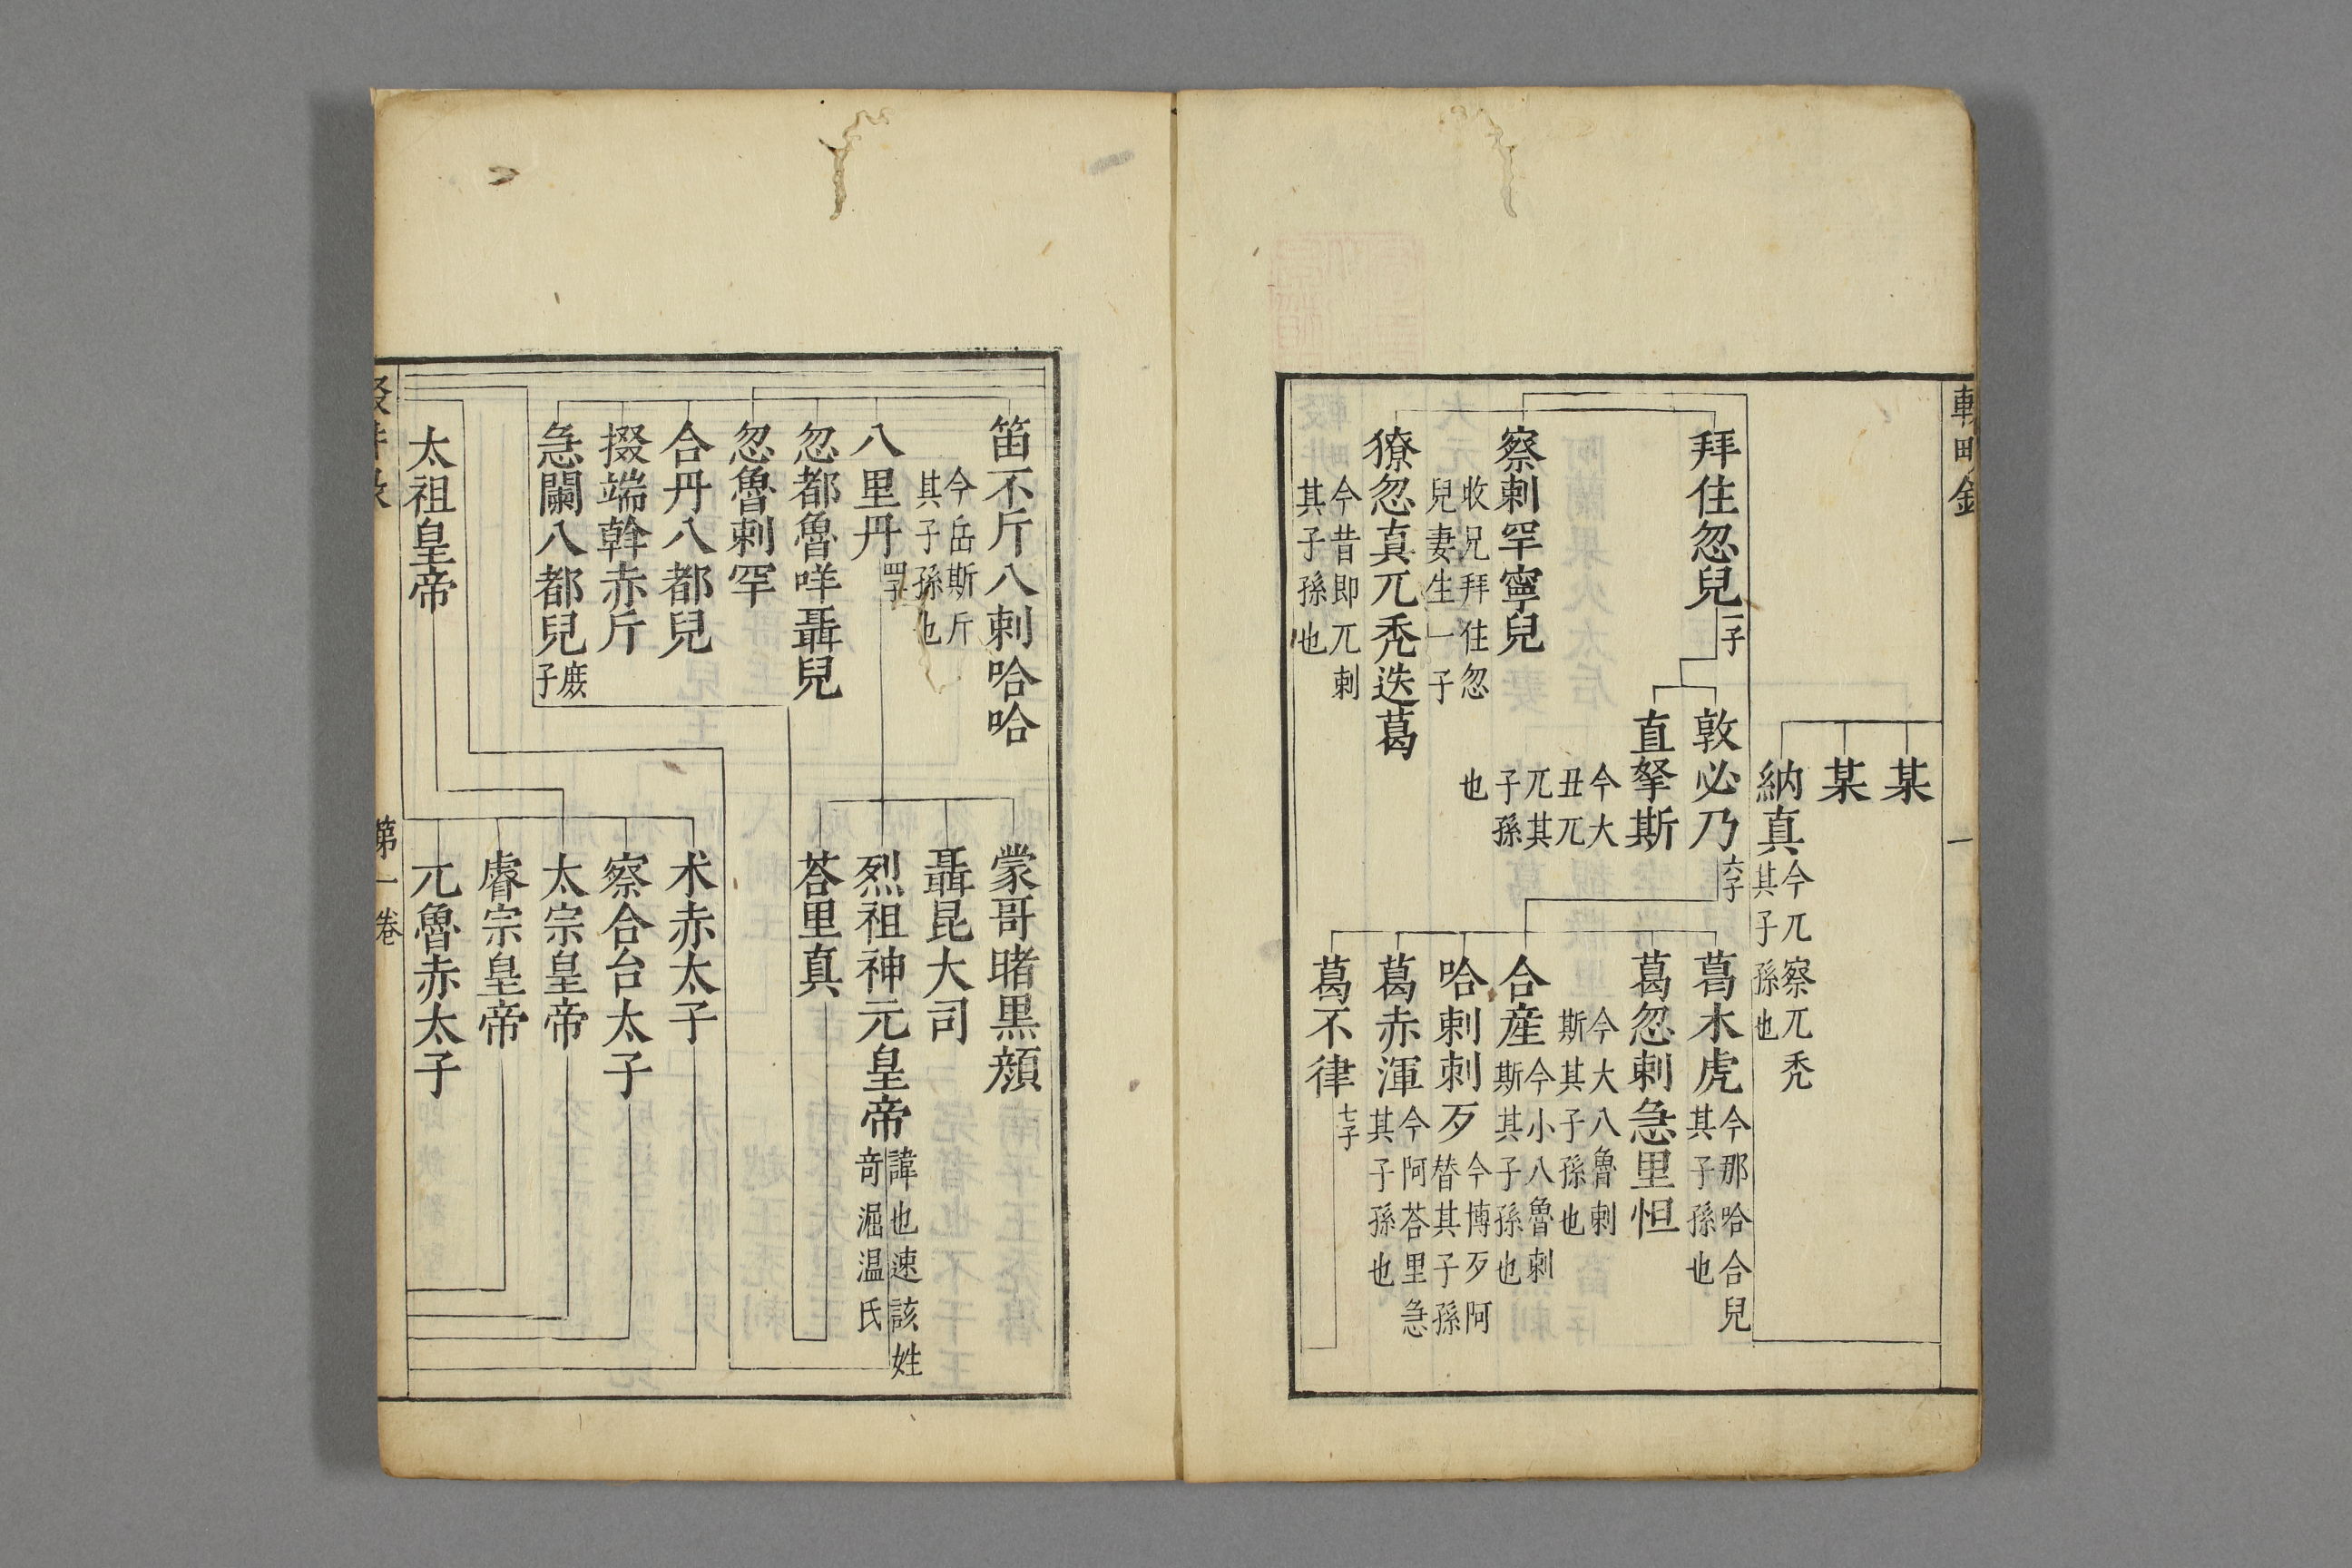 輟畊錄
一
某
某
納真
今兀察兀秃
其子孫也
拜住忽兒
一子
敦必乃
六子
葛木虎
今那哈合兒
其子孫也
直拏斯
今大
丑兀
兀其
子孫
也
葛忽剌急里怛
今大八魯剌
斯其子孫也
察剌罕寧兒
收兄拜住忽
兒妻生一子
合産
今小八魯剌
斯其子孫也
哈剌剌歹
今博歹阿
替其子孫
獠忽真兀秃迭葛
今昔即兀剌
其子孫也
葛赤渾
今阿荅里急
其子孫也
葛不律
七子
笛不斤八剌哈哈
今岳斯斤
其子孫也
八里丹
四子
忽都魯咩聶兒
忽魯剌罕
合丹八都兒
掇端斡赤斤
急闌八都兒
庶
子
蒙哥睹黒顔
聶昆大司
烈祖神元皇帝
諱也速該姓
竒渥温氏
荅里真
太祖皇帝
术赤太子
察合台太子
太宗皇帝
睿宗皇帝
兀魯赤太子
第一卷